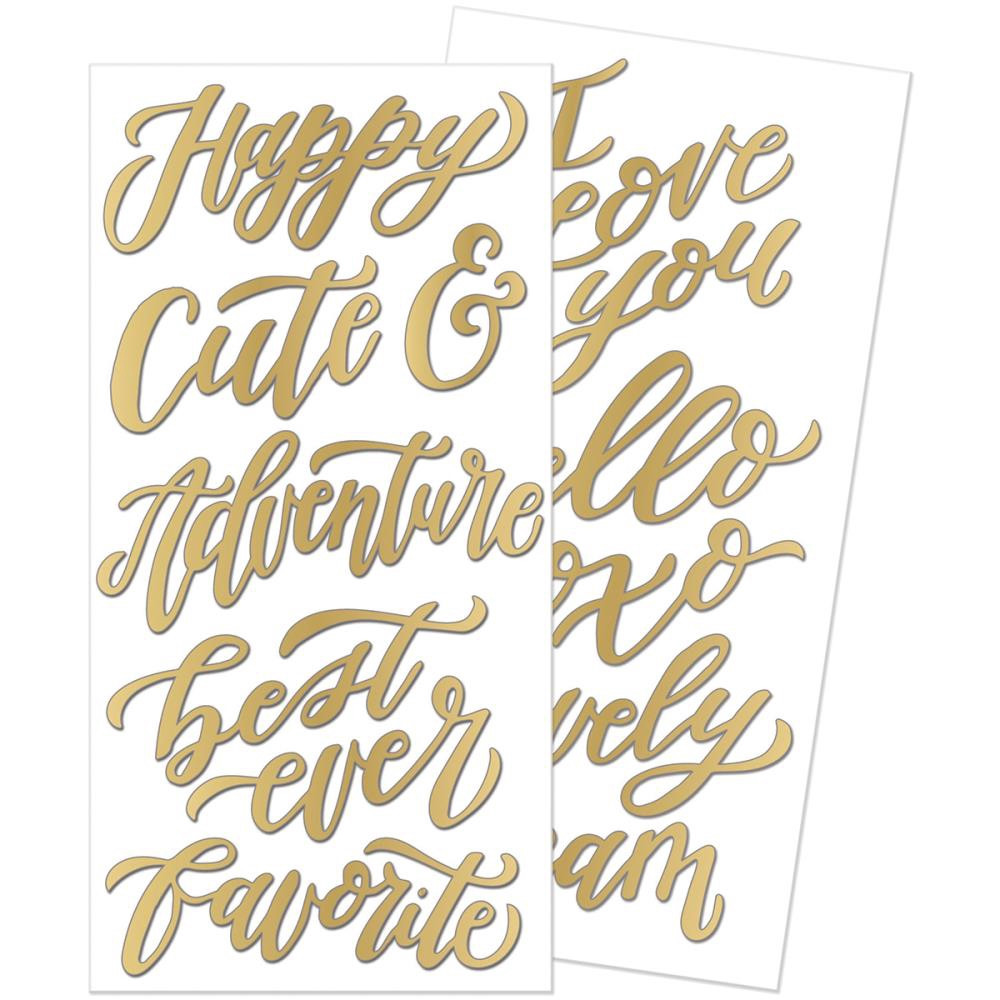 Happy
Cute &
Adventure
best
ever
favorite
I
Love
you
llo
oxo
vely
am